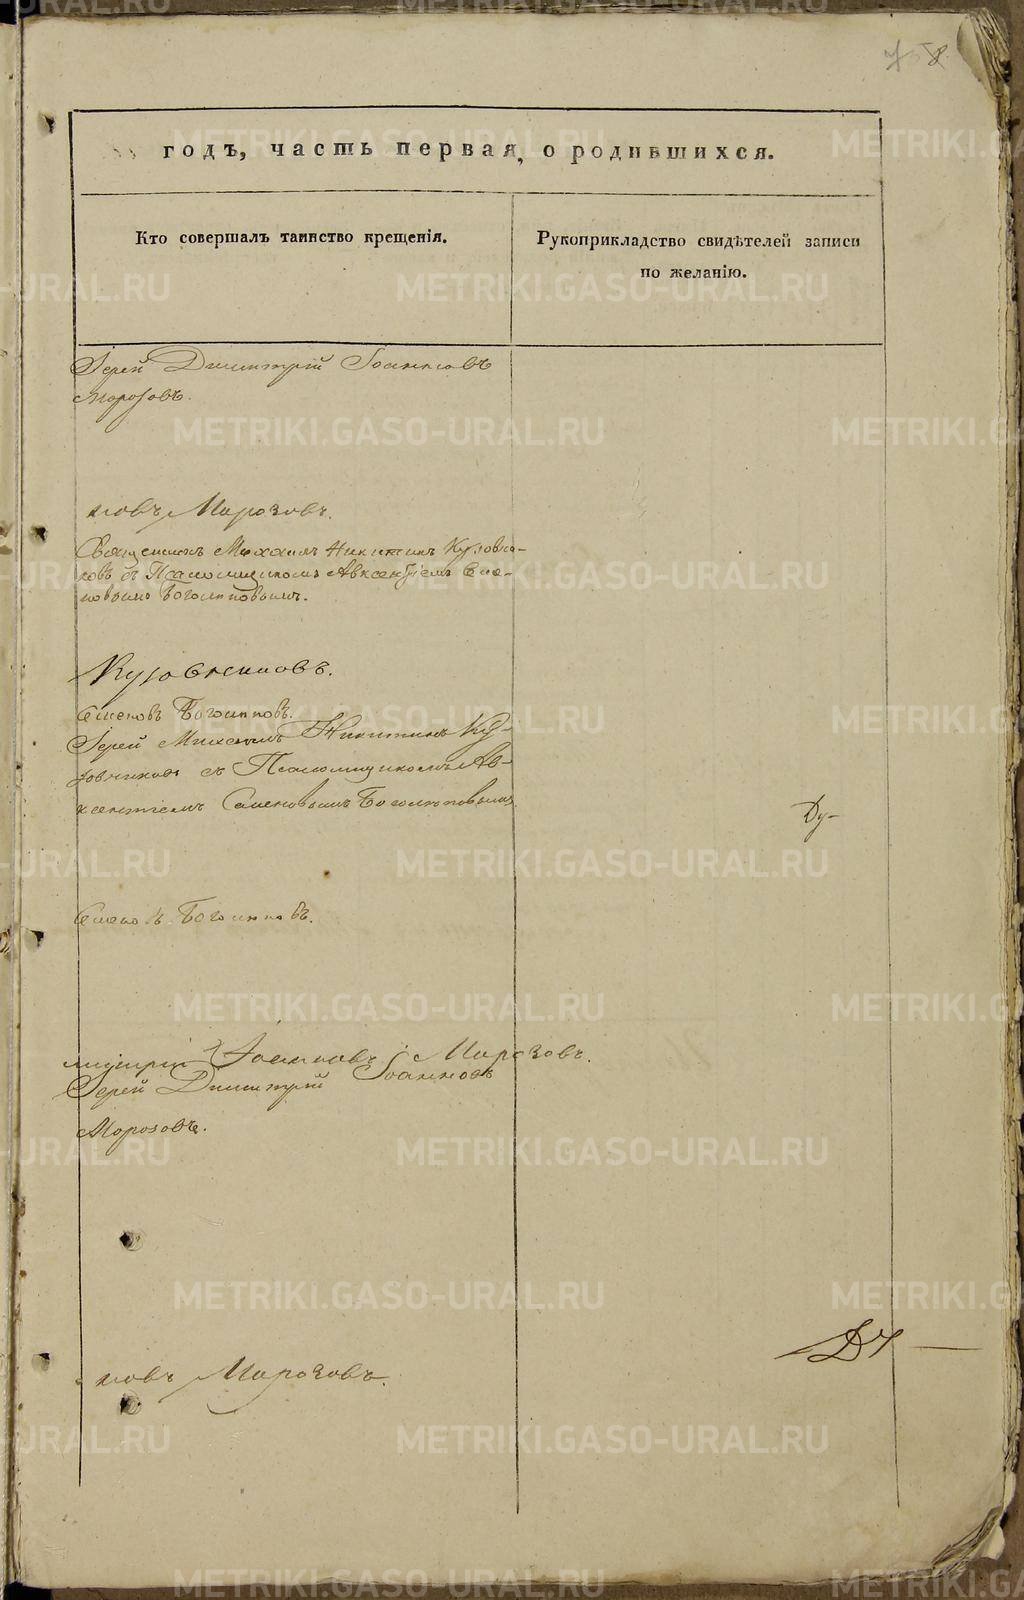 8
годъ, часть первая, о родившихся.
Кто совершалъ таинство крещенія.
Рукоприкладство свидѣтелей записи
по желанію.
Іерей Димитрій Іоанновъ
Морозовъ.
новъ Морозовъ.
Священникъ Михаилъ Никитинъ Кузовни-
ковъ съ Псаломщикомъ Авксентіемъ Семе-
новымъ Боголюповымъ.
Кузовниковъ.
Семеновъ Боголюповъ.
Іерей Михаилъ Никитинъ Ку-
зовниковъ съ Псаломщикомъ Ав-
ксентіемъ Семеновымъ Боголюповымъ
Ду-
Семеновъ Боголюповъ.
митрій Іоанновъ Морозовъ.
Іерей Димитрій Іоанновъ
Морозовъ.
новъ Морозовъ.
METRIKI.GASO-URAL.RU